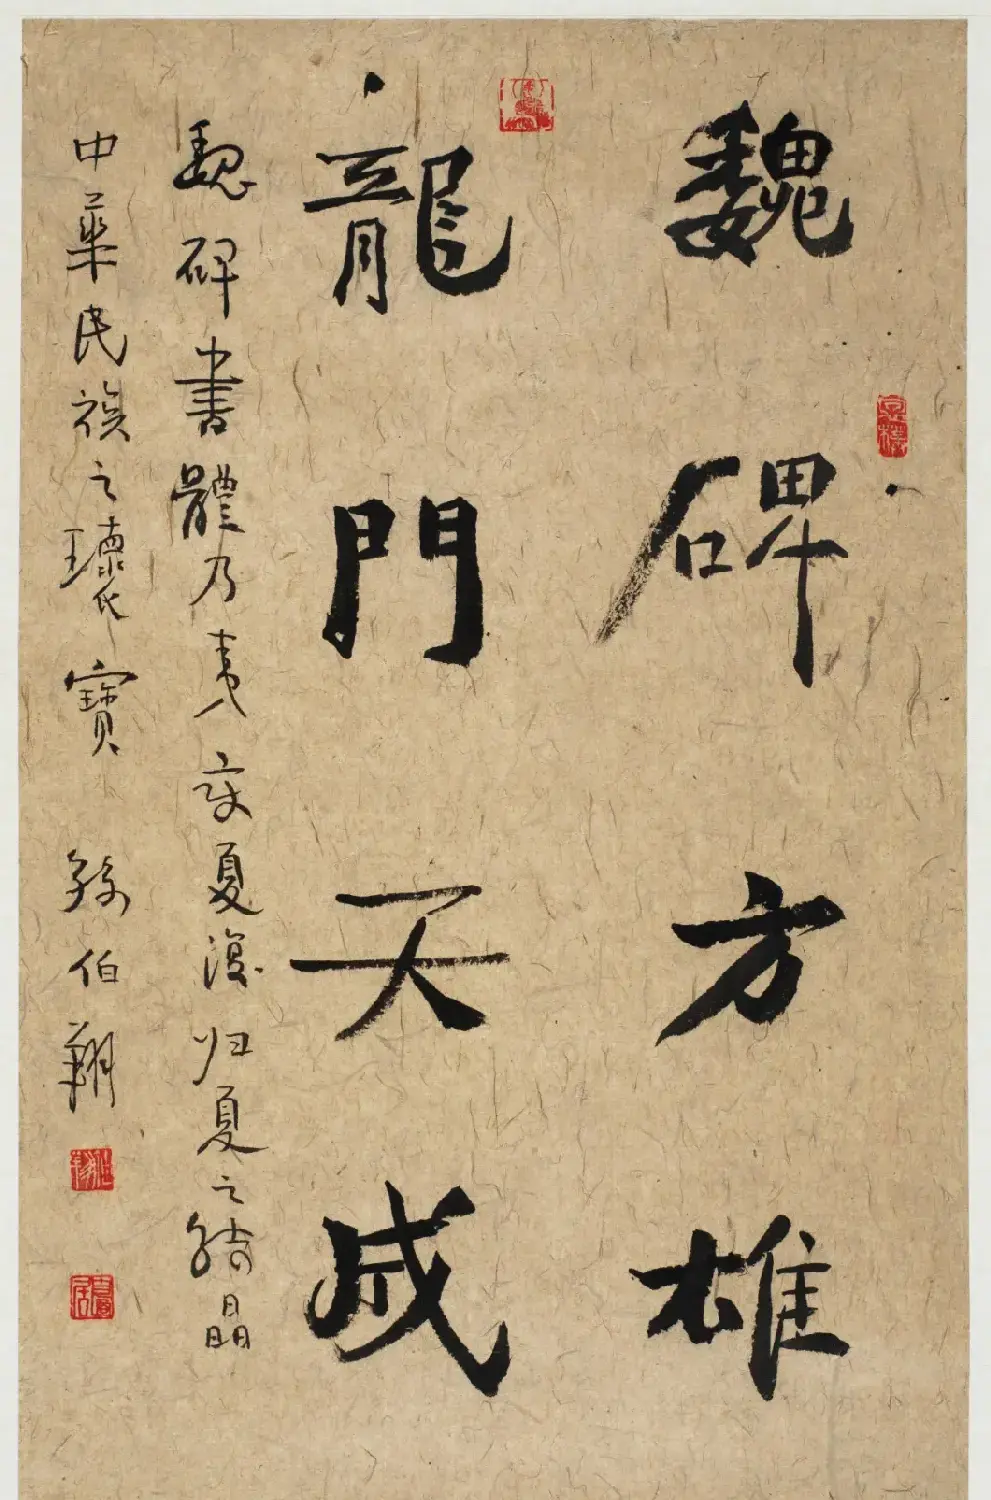 魏碑方雄
龍門天成
魏碑書體乃夷变夏復归夏之結晶
中華民族之瓌寶
孫伯翔